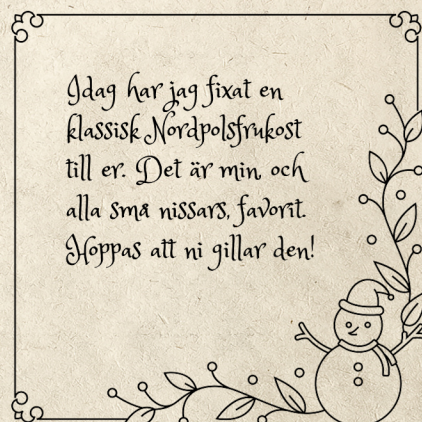 Idag har jag fixat en
klassisk Nordpolsfrukost
till er. Det är min, och
alla små nissars, favorit.
Hoppas att ni gillar den!